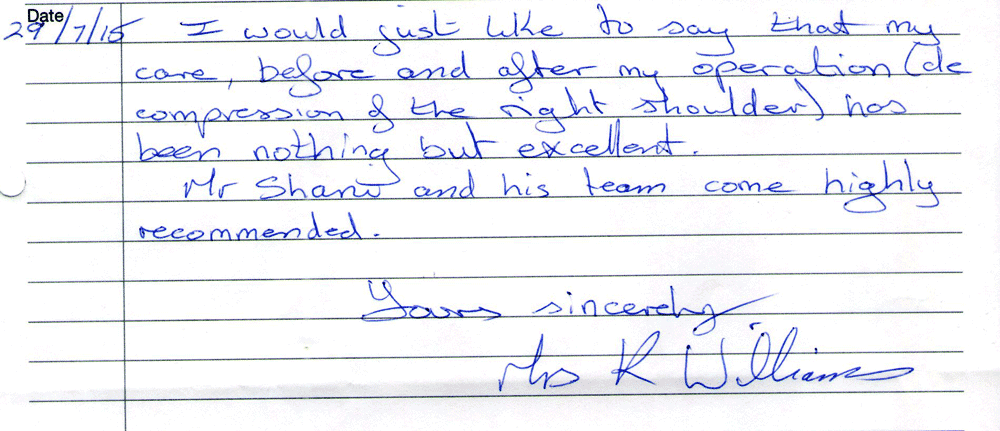 Date
29/7/15 I would just like to say that my
care, before and after my operation (de
compression of the right shoulder) has
been nothing but excellent.
Mr Shanu and his team come highly
recommended.
Yours sincerely
Mrs K Williams